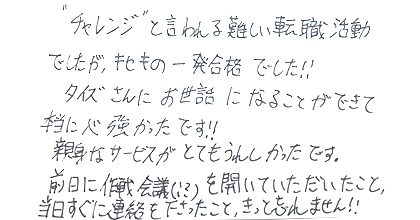 "チャレンジ"と言われる難しい転職活動
でしたが、キセキの一発合格でした!!
タイズさんにお世話になることができて
本当に心強かったです!!
親身なサービスがとてもうれしかったです。
前日に作戦会議(!?)を開いていただいたこと、
当日すぐに連絡を下さったこと、きっと忘れません!!